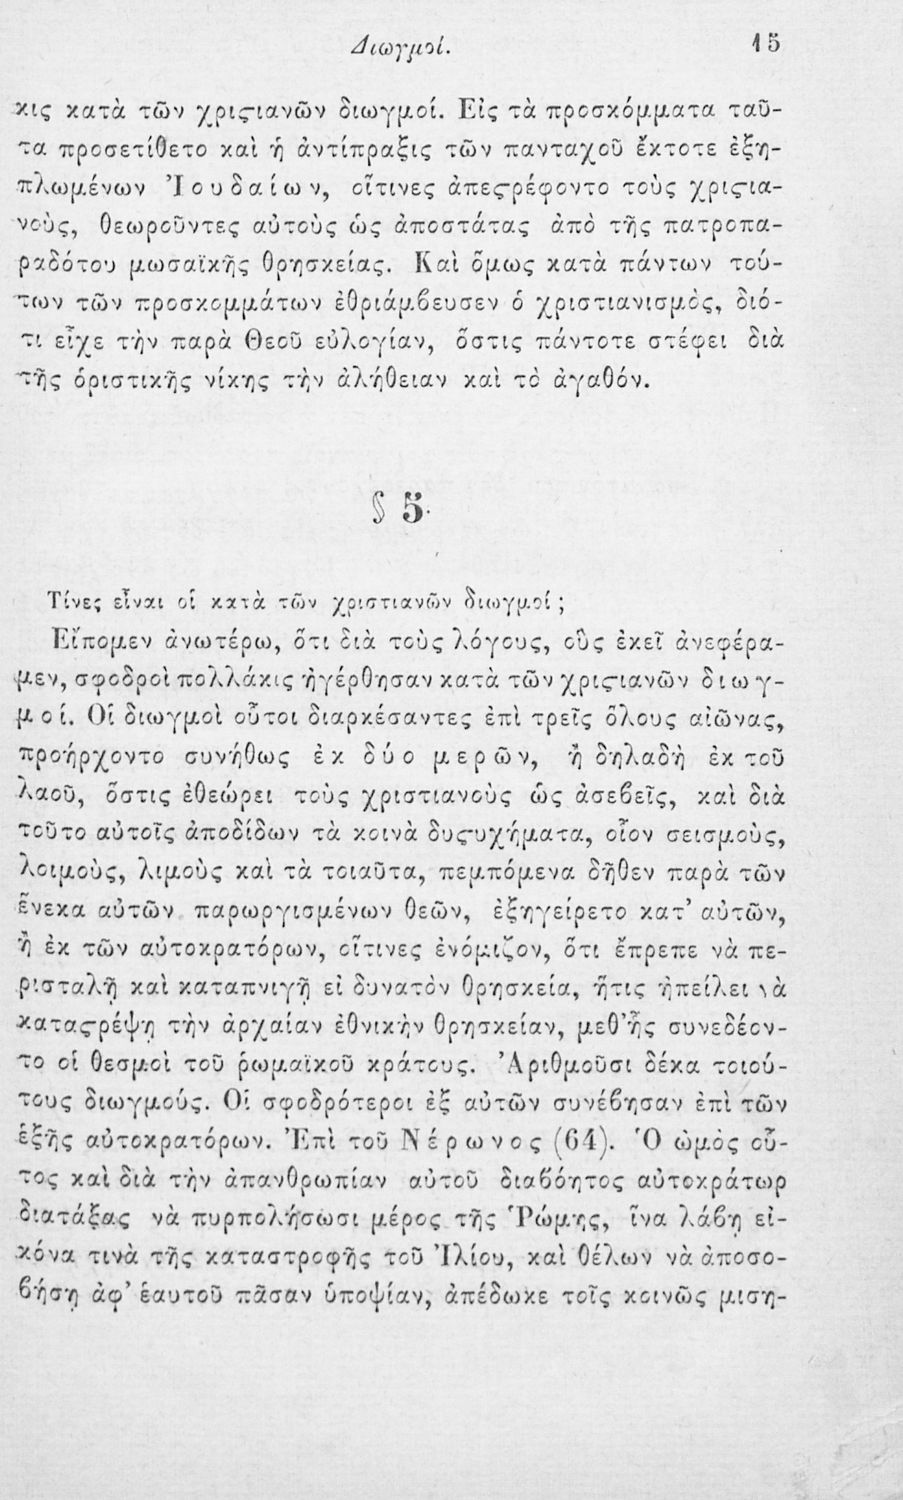 Διωγμοί. 15
κις κατὰ τῶν χριϛιανῶν διωγμοί. Εἰς τὰ προσκόμματα ταῦ-
τα προσετίθετο καὶ ἡ ἀντίπραξις τῶν πανταχοῦ ἔκτοτε ἐξη-
πλωμένων Ἰουδαίων, οἵτινες ἀπεϛρέφοντο τοὺς χριϛια-
νοὺς, θεωροῦντες αὐτοὺς ὡς ἀποστάτας ἀπὸ τῆς πατροπα-
ραδότου μωσαϊκῆς θρησκείας. Καὶ ὅμως κατὰ πάντων τού-
των τῶν προσκομμάτων ἐθριάμβευσεν ὁ χριστιανισμὸς, διό-
τι εἶχε τὴν παρὰ Θεοῦ εὐλογίαν, ὅστις πάντοτε στέφει διὰ
τῆς ὁριστικῆς νίκης τὴν ἀλήθειαν καὶ τὸ ἀγαθόν.
§ 5.
Τίνες εἶναι οἱ κατὰ τῶν χριστιανῶν διωγμοί;
Εἴπομεν ἀνωτέρω, ὅτι διὰ τοὺς λόγους, οὓς ἐκεῖ ἀνεφέρα-
μεν, σφοδροὶ πολλάκις ἠγέρθησαν κατὰ τῶν χριϛιανῶν διωγ-
μοί. Οἱ διωγμοὶ οὗτοι διαρκέσαντες ἐπὶ τρεῖς ὅλους αἰῶνας,
προήρχοντο συνήθως ἐκ δύο μερῶν, ἢ δηλαδὴ ἐκ τοῦ
λαοῦ, ὅστις ἐθεώρει τοὺς χριστιανοὺς ὡς ἀσεβεῖς, καὶ διὰ
τοῦτο αὐτοῖς ἀποδίδων τὰ κοινὰ δυϛυχήματα, οἷον σεισμοὺς,
λοιμοὺς, λιμοὺς καὶ τὰ τοιαῦτα, πεμπόμενα δῆθεν παρὰ τῶν
ἕνεκα αὐτῶν παρωργισμένων θεῶν, ἐξηγείρετο κατ' αὐτῶν,
ἢ ἐκ τῶν αὐτοκρατόρων, οἵτινες ἐνόμιζον, ὅτι ἔπρεπε νὰ πε-
ρισταλῇ καὶ καταπνιγῇ εἰ δυνατὸν θρησκεία, ἥτις ἠπείλει νὰ
καταϛρέψῃ τὴν ἀρχαίαν ἐθνικὴν θρησκείαν, μεθ' ἧς συνεδέον-
το οἱ θεσμοὶ τοῦ ῥωμαϊκοῦ κράτους. Ἀριθμοῦσι δέκα τοιού-
τους διωγμούς. Οἱ σφοδρότεροι ἐξ αὐτῶν συνέβησαν ἐπὶ τῶν
ἑξῆς αὐτοκρατόρων. Ἐπὶ τοῦ Νέρωνος (64). Ὁ ὠμὸς οὗ-
τος καὶ διὰ τὴν ἀπανθρωπίαν αὐτοῦ διαβόητος αὐτοκράτωρ
διατάξας νὰ πυρπολήσωσι μέρος τῆς Ῥώμης, ἵνα λάβῃ εἰ-
κόνα τινὰ τῆς καταστροφῆς τοῦ Ἰλίου, καὶ θέλων νὰ ἀποσο-
βήσῃ ἀφ' ἑαυτοῦ πᾶσαν ὑποψίαν, ἀπέδωκε τοῖς κοινῶς μιση-